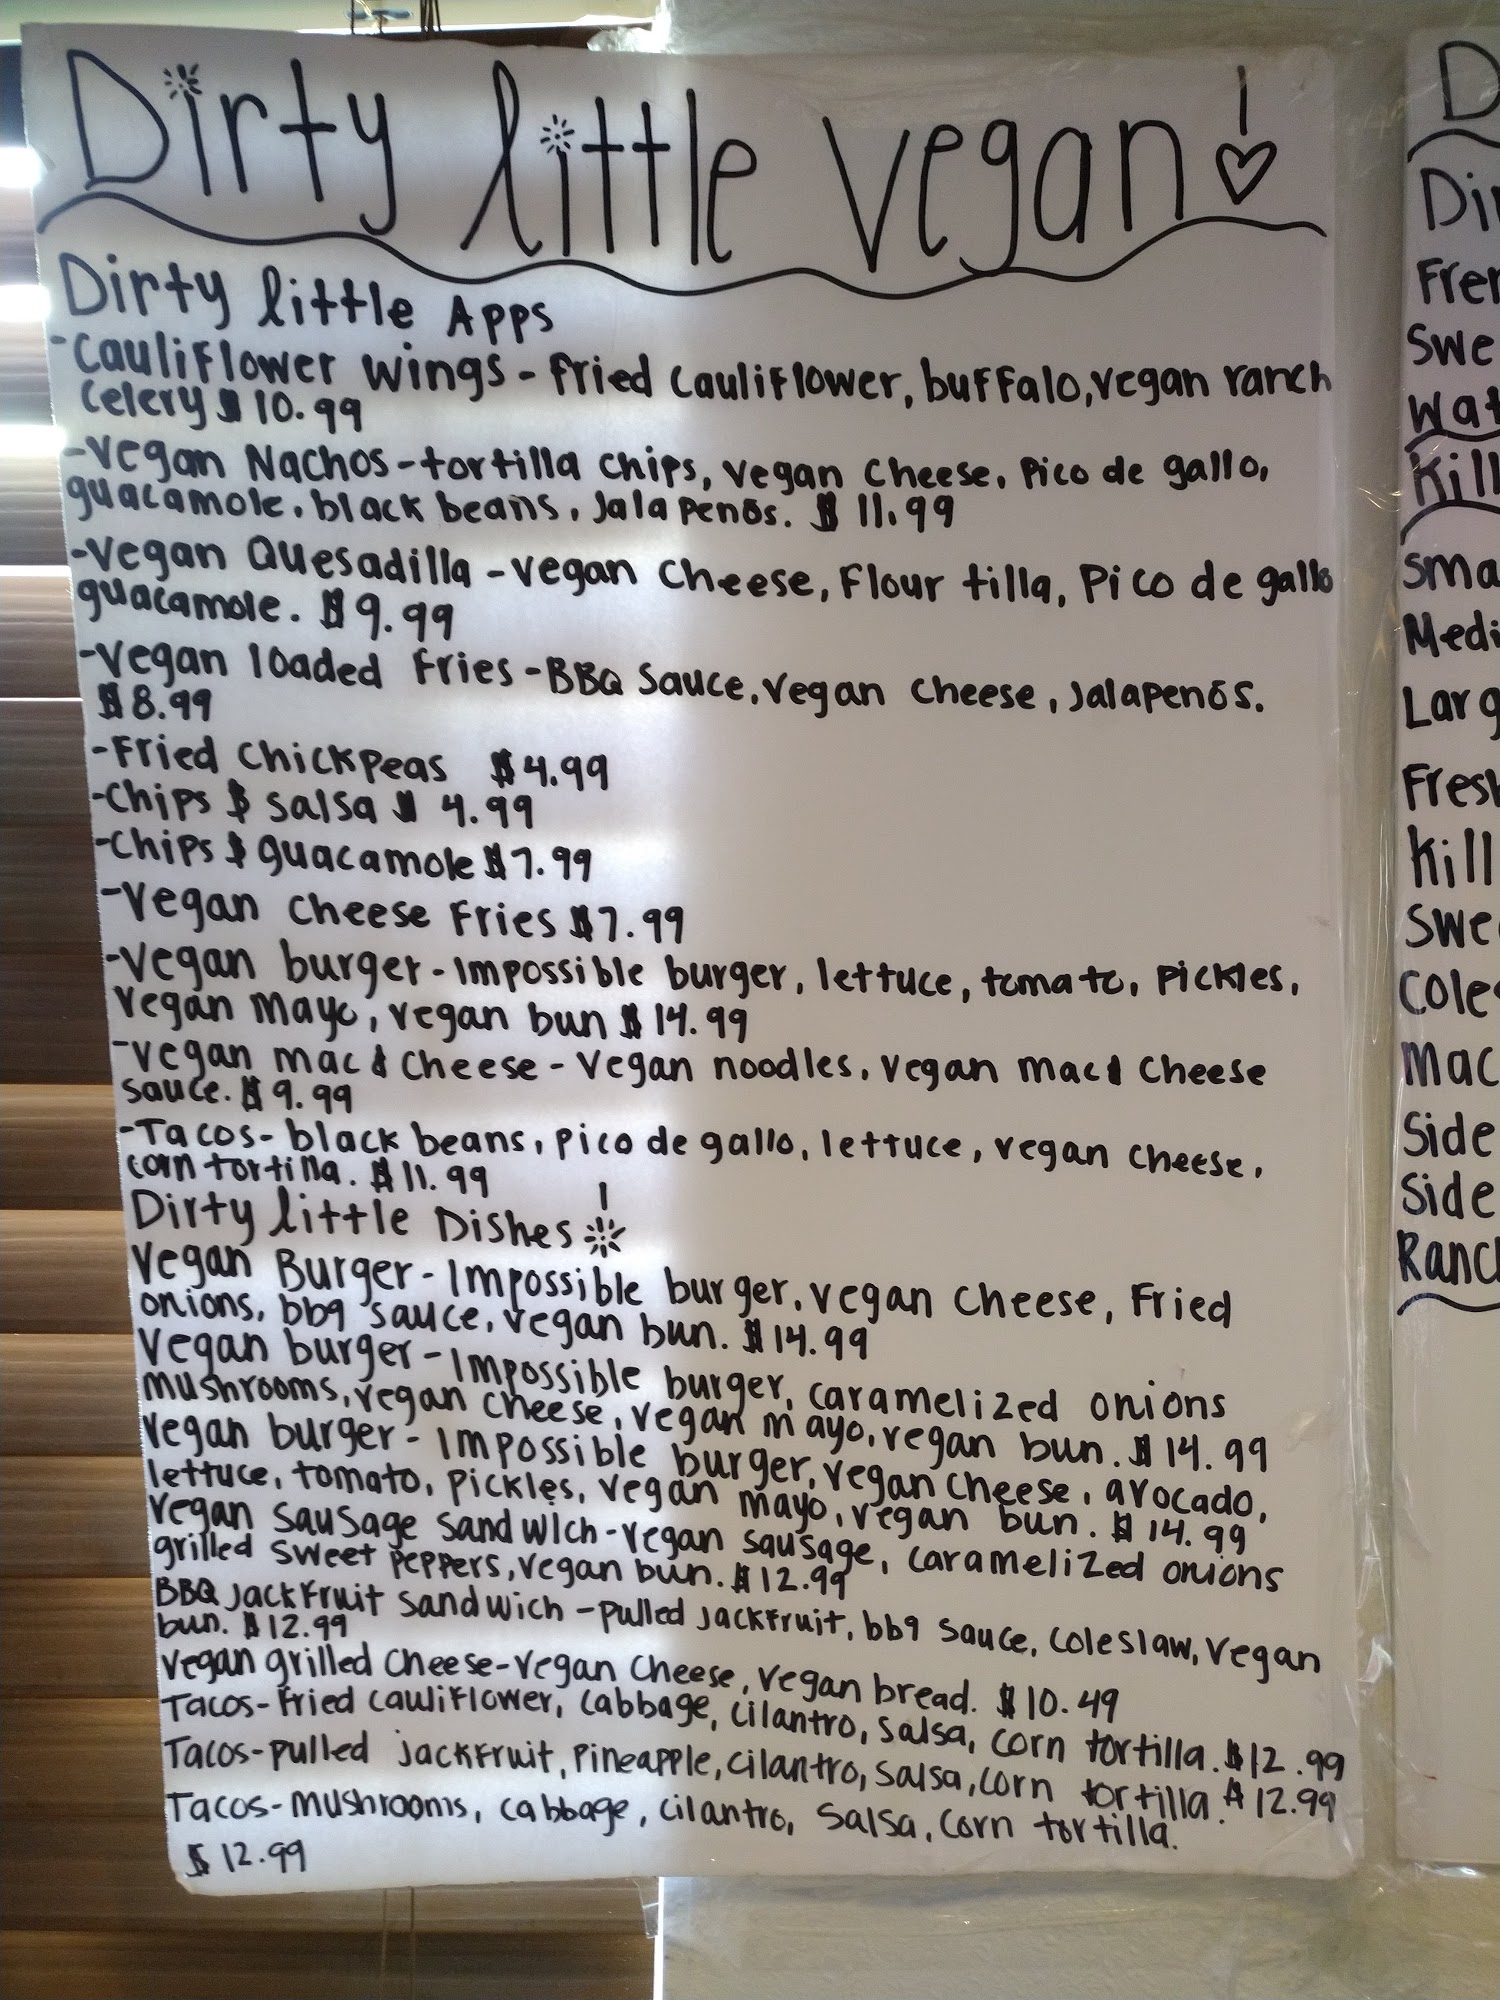 Dirty little vegan!
Dirty little Apps
-Cauliflower wings - fried cauliflower, buffalo, vegan ranch
Celery $10.99
-Vegan Nachos - tortilla chips, vegan cheese, Pico de gallo,
guacamole, black beans, jalapenōs. $11.99
-Vegan Quesadilla - vegan cheese, Flour tilla, Pico de gallo
guacamole. $9.99
-Vegan loaded fries - BBQ Sauce, vegan cheese, jalapenōs.
$8.99
-Fried Chickpeas $4.99
-Chips & salsa $4.99
-Chips & guacamole $7.99
-Vegan cheese Fries $7.99
-Vegan burger - Impossible burger, lettuce, tomato, Pickles,
Vegan Mayo, vegan bun $14.99
-Vegan mac & Cheese - Vegan noodles, vegan mac & Cheese
sauce. $9.99
-Tacos - black beans, pico de gallo, lettuce, vegan cheese,
corn tortilla. $11.99
Dirty little Dishes!
Vegan Burger - Impossible burger, vegan cheese, Fried
onions, bbq sauce, vegan bun. $14.99
Vegan burger - Impossible burger, caramelized onions
mushrooms, vegan cheese, vegan mayo, vegan bun. $14.99
Vegan burger - Impossible burger, vegan cheese, avocado,
lettuce, tomato, pickles, vegan mayo, vegan bun. $14.99
Vegan Sausage Sandwich - vegan sausage, caramelized onions
grilled sweet peppers, vegan bun. $12.99
BBQ jackfruit sandwich - pulled jackfruit, bbq sauce, coleslaw, vegan
bun. $12.99
Vegan grilled cheese - vegan cheese, vegan bread. $10.49
Tacos - fried cauliflower, cabbage, cilantro, salsa, corn tortilla. $12.99
Tacos - pulled jackfruit, pineapple, cilantro, salsa, corn tortilla. $12.99
Tacos - mushrooms, cabbage, cilantro, salsa, corn tortilla.
$12.99
D
Dir
Fren
Swe
Wat
Kill
Sma
Medi
Larg
Fresh
Kill
Swe
Coles
Mac
Side
Side
Ranc